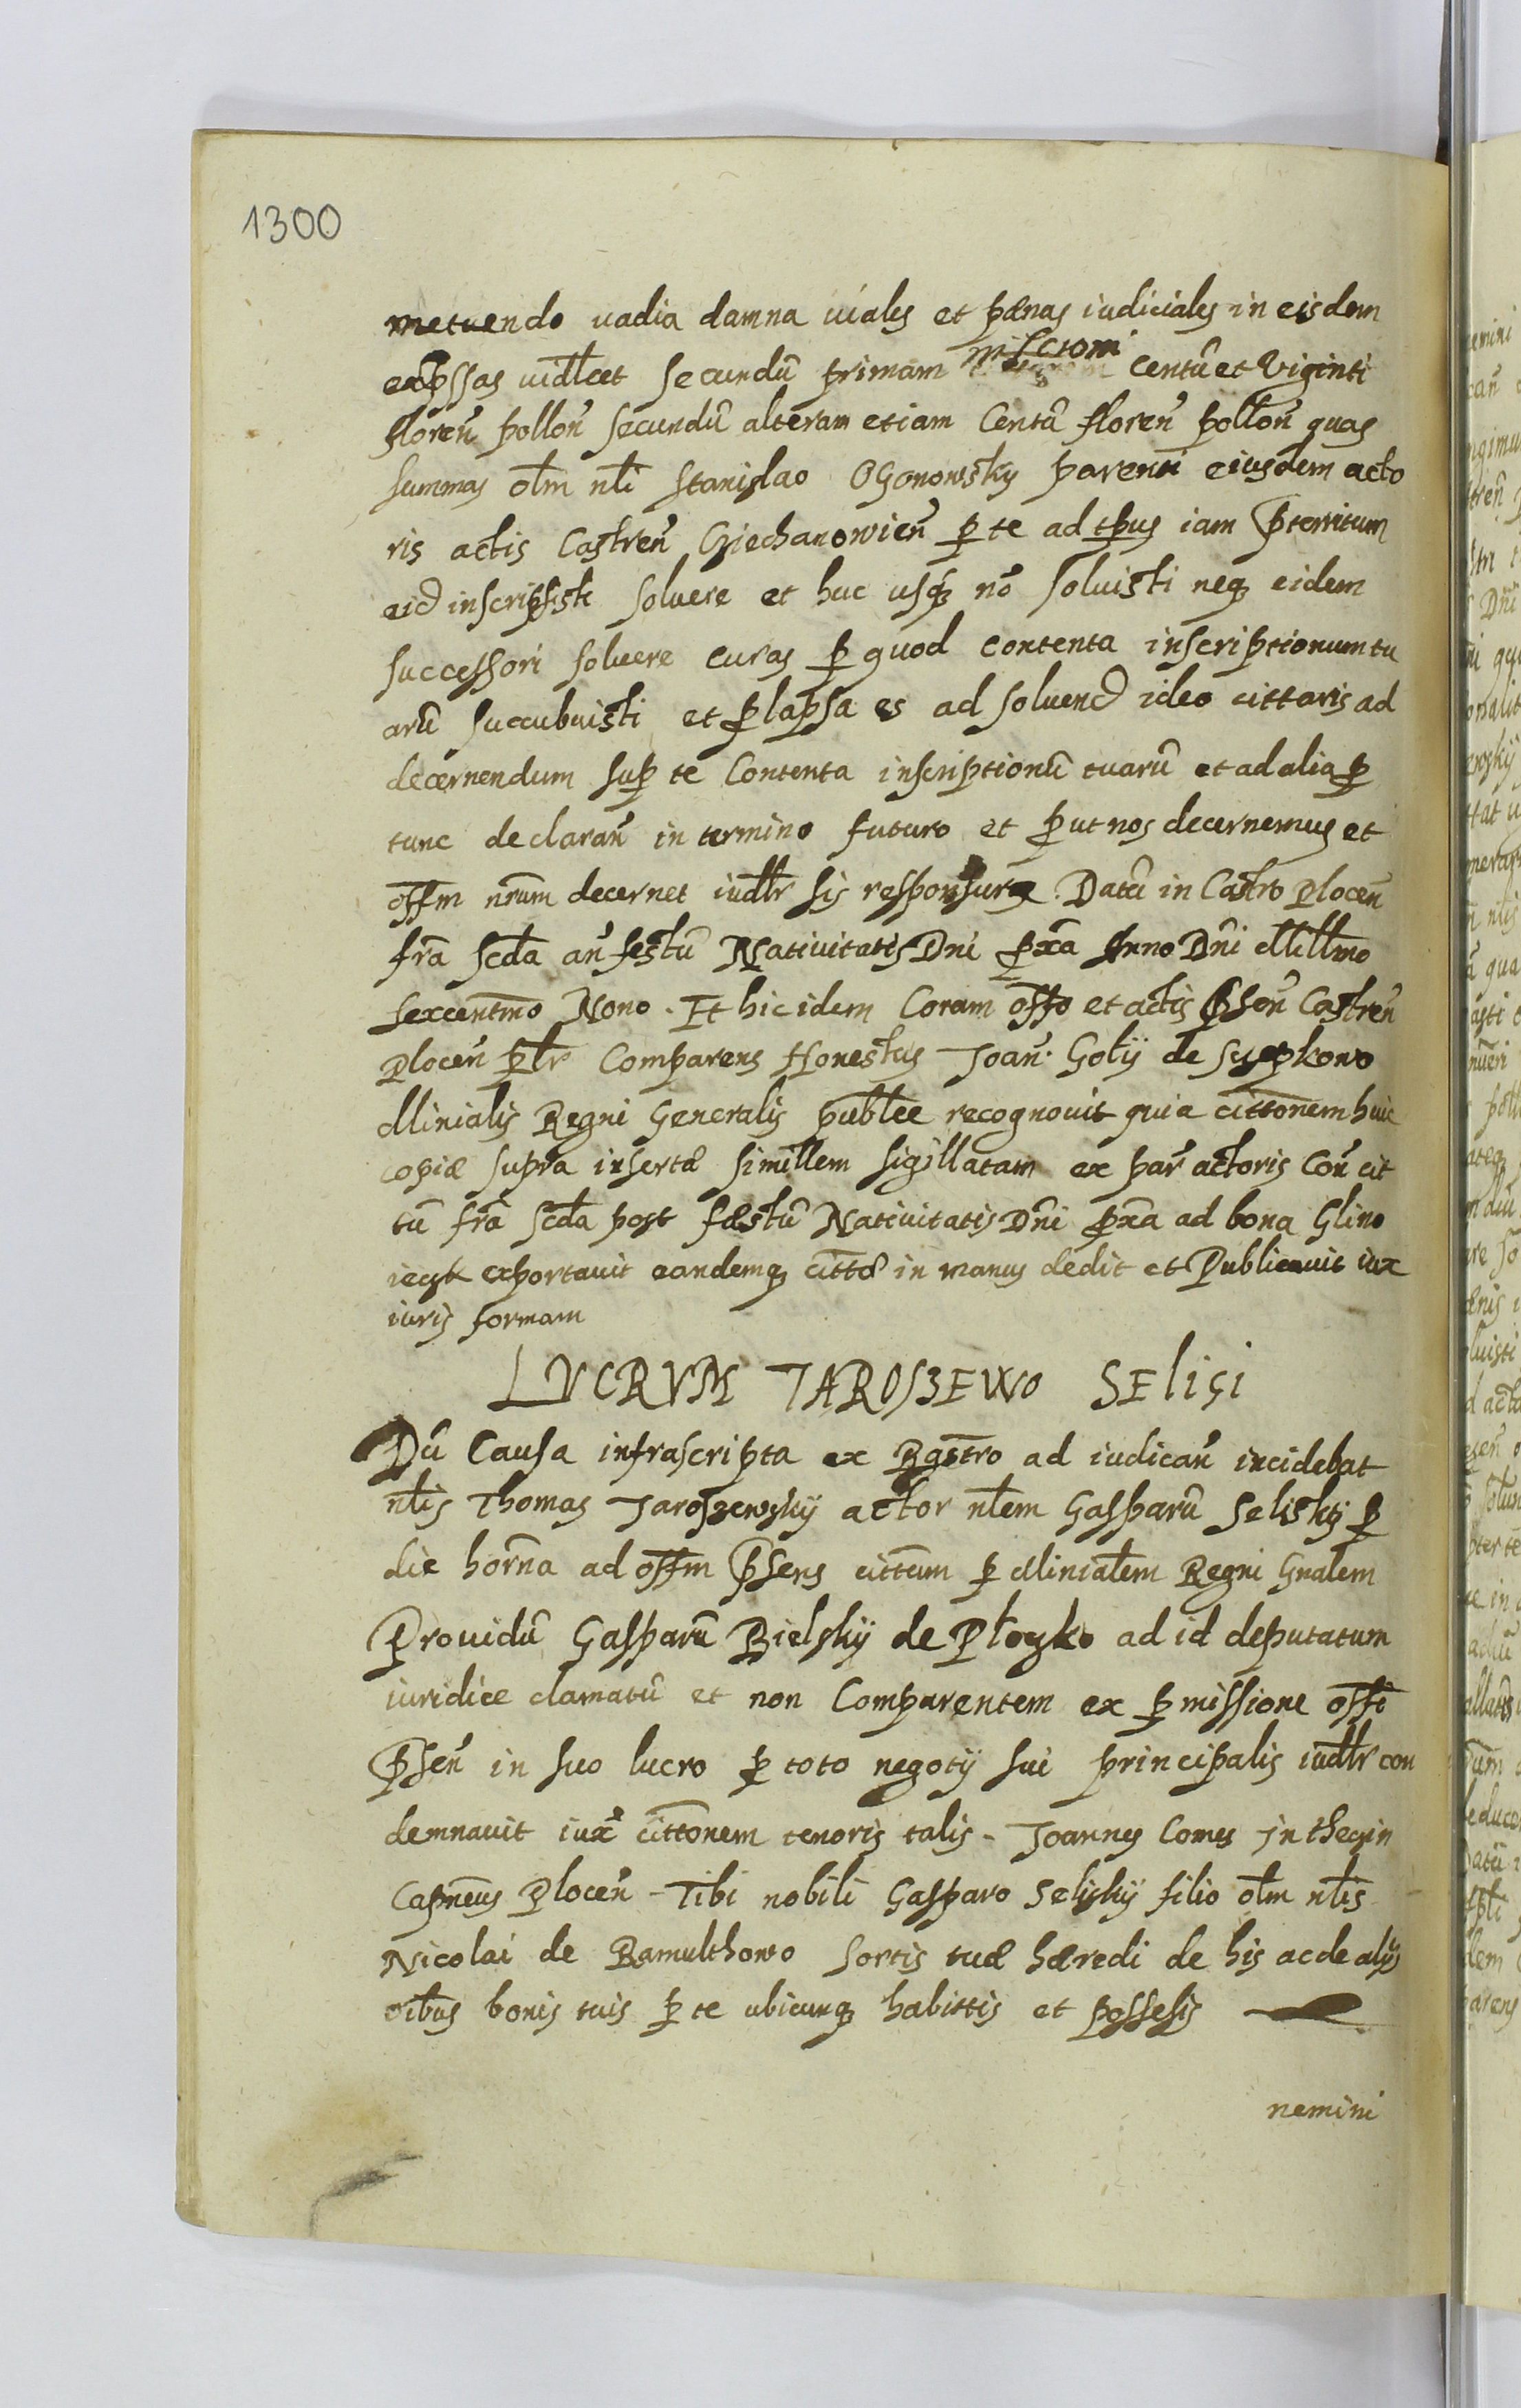 1300
metuendo vadia damna viales et pænas iudiciales in eisdem
exp̄ssas vidl̄cet secundū primam centū et Viginti
floreñ polloñ secundū alteram etiam Centū floreñ polloñ quas
summas ol̄m nl̄i Stanislao Ogonowsky parenti eiusdem acto
ris actis Castreñ Cziechanowieñ p te ad tp̄us iam p̄teritum
eid inscripsisti soluere et huc usq̄ nō soluisti neq̄ eidem
successori soluere curas p quod contenta inscriptionum tu
arū succubuisti et plapsa es ad soluend ideo cittaris ad
decernendum sup te Contenta inscriptionū tuarū et ad alia p
tunc declarañ in termino futuro et put nos decernemus et
off̄m nr̄um decernet iudl̄r sis responsura. Datū in Castro Ploceñ
fr̄a scd̄a añ festū Natiuitatis Dni p̄xa Anno Dn̄i Mill̄mo
sexcentm̄o Nono. Et hic idem Coram off̄o et actis p̄señ Castreñ
Ploceñ pl̄r Comparens Honestus Joañ. Goły de
Minialis Regni Generalis publ̄ce recognouit quia citt̄onem huic
copiæ supra insertæ simillem sigillatam ex par̄ actoris Coñ cit
tū fr̄a scd̄a post fæstū Natiuitatis Dn̄i p̄xa ad bona Glino
ieck exportauit eandemq̄ citt̄o in manus dedit et Publicauit iux
iuris formam
LVCRVM JAROSZEWO SEliçi
Dū Causa infrascripta ex Rgs̄tro ad iudicañ incidebat
nl̄is Thomas Jaroszewskÿ actor nl̄em Gasparū Selisky p
die horn̄a ad off̄m p̄sens cittum p Minialem Regni Gnalem
Prouidū Gasparū Bielskÿ de Płoczko ad id deputatum
iuridice clamatū et non Comparentem ex pmissione off̄i
p̄señ in suo lucro p toto negotÿ sui principalis iudl̄r con
demnauit iux̄ citt̄onem tenoris talis. Joannes Comes in theczin
Capneus Ploceñ. Tibi nobili Gasparo Seliskÿ filio ol̄m nl̄is
Nicolai de Ramulthowo sortis tuæ hæredi de his ac de alÿs
oībus bonis tuis p te ubicunq̄ habittis et possesis
nemini